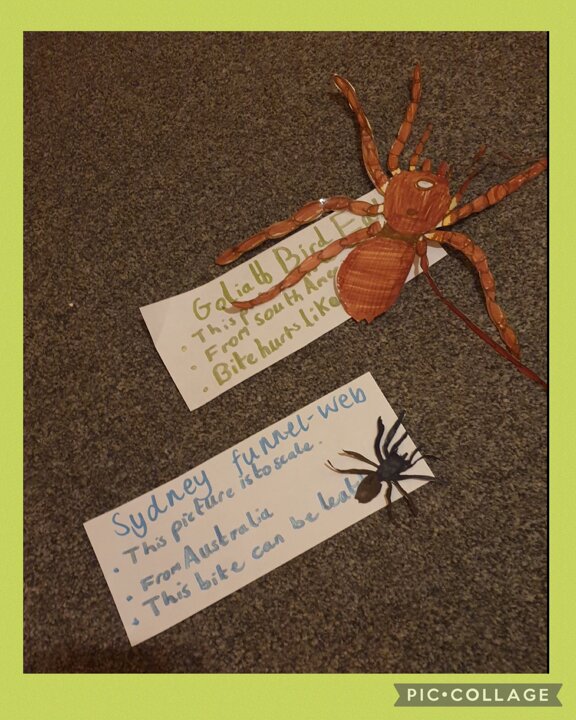 Goliath Bird
This
From South
Bite hurts like
Sydney funnel-web
This picture is to scale.
From Australia
This bite can be
PIC•COLLAGE